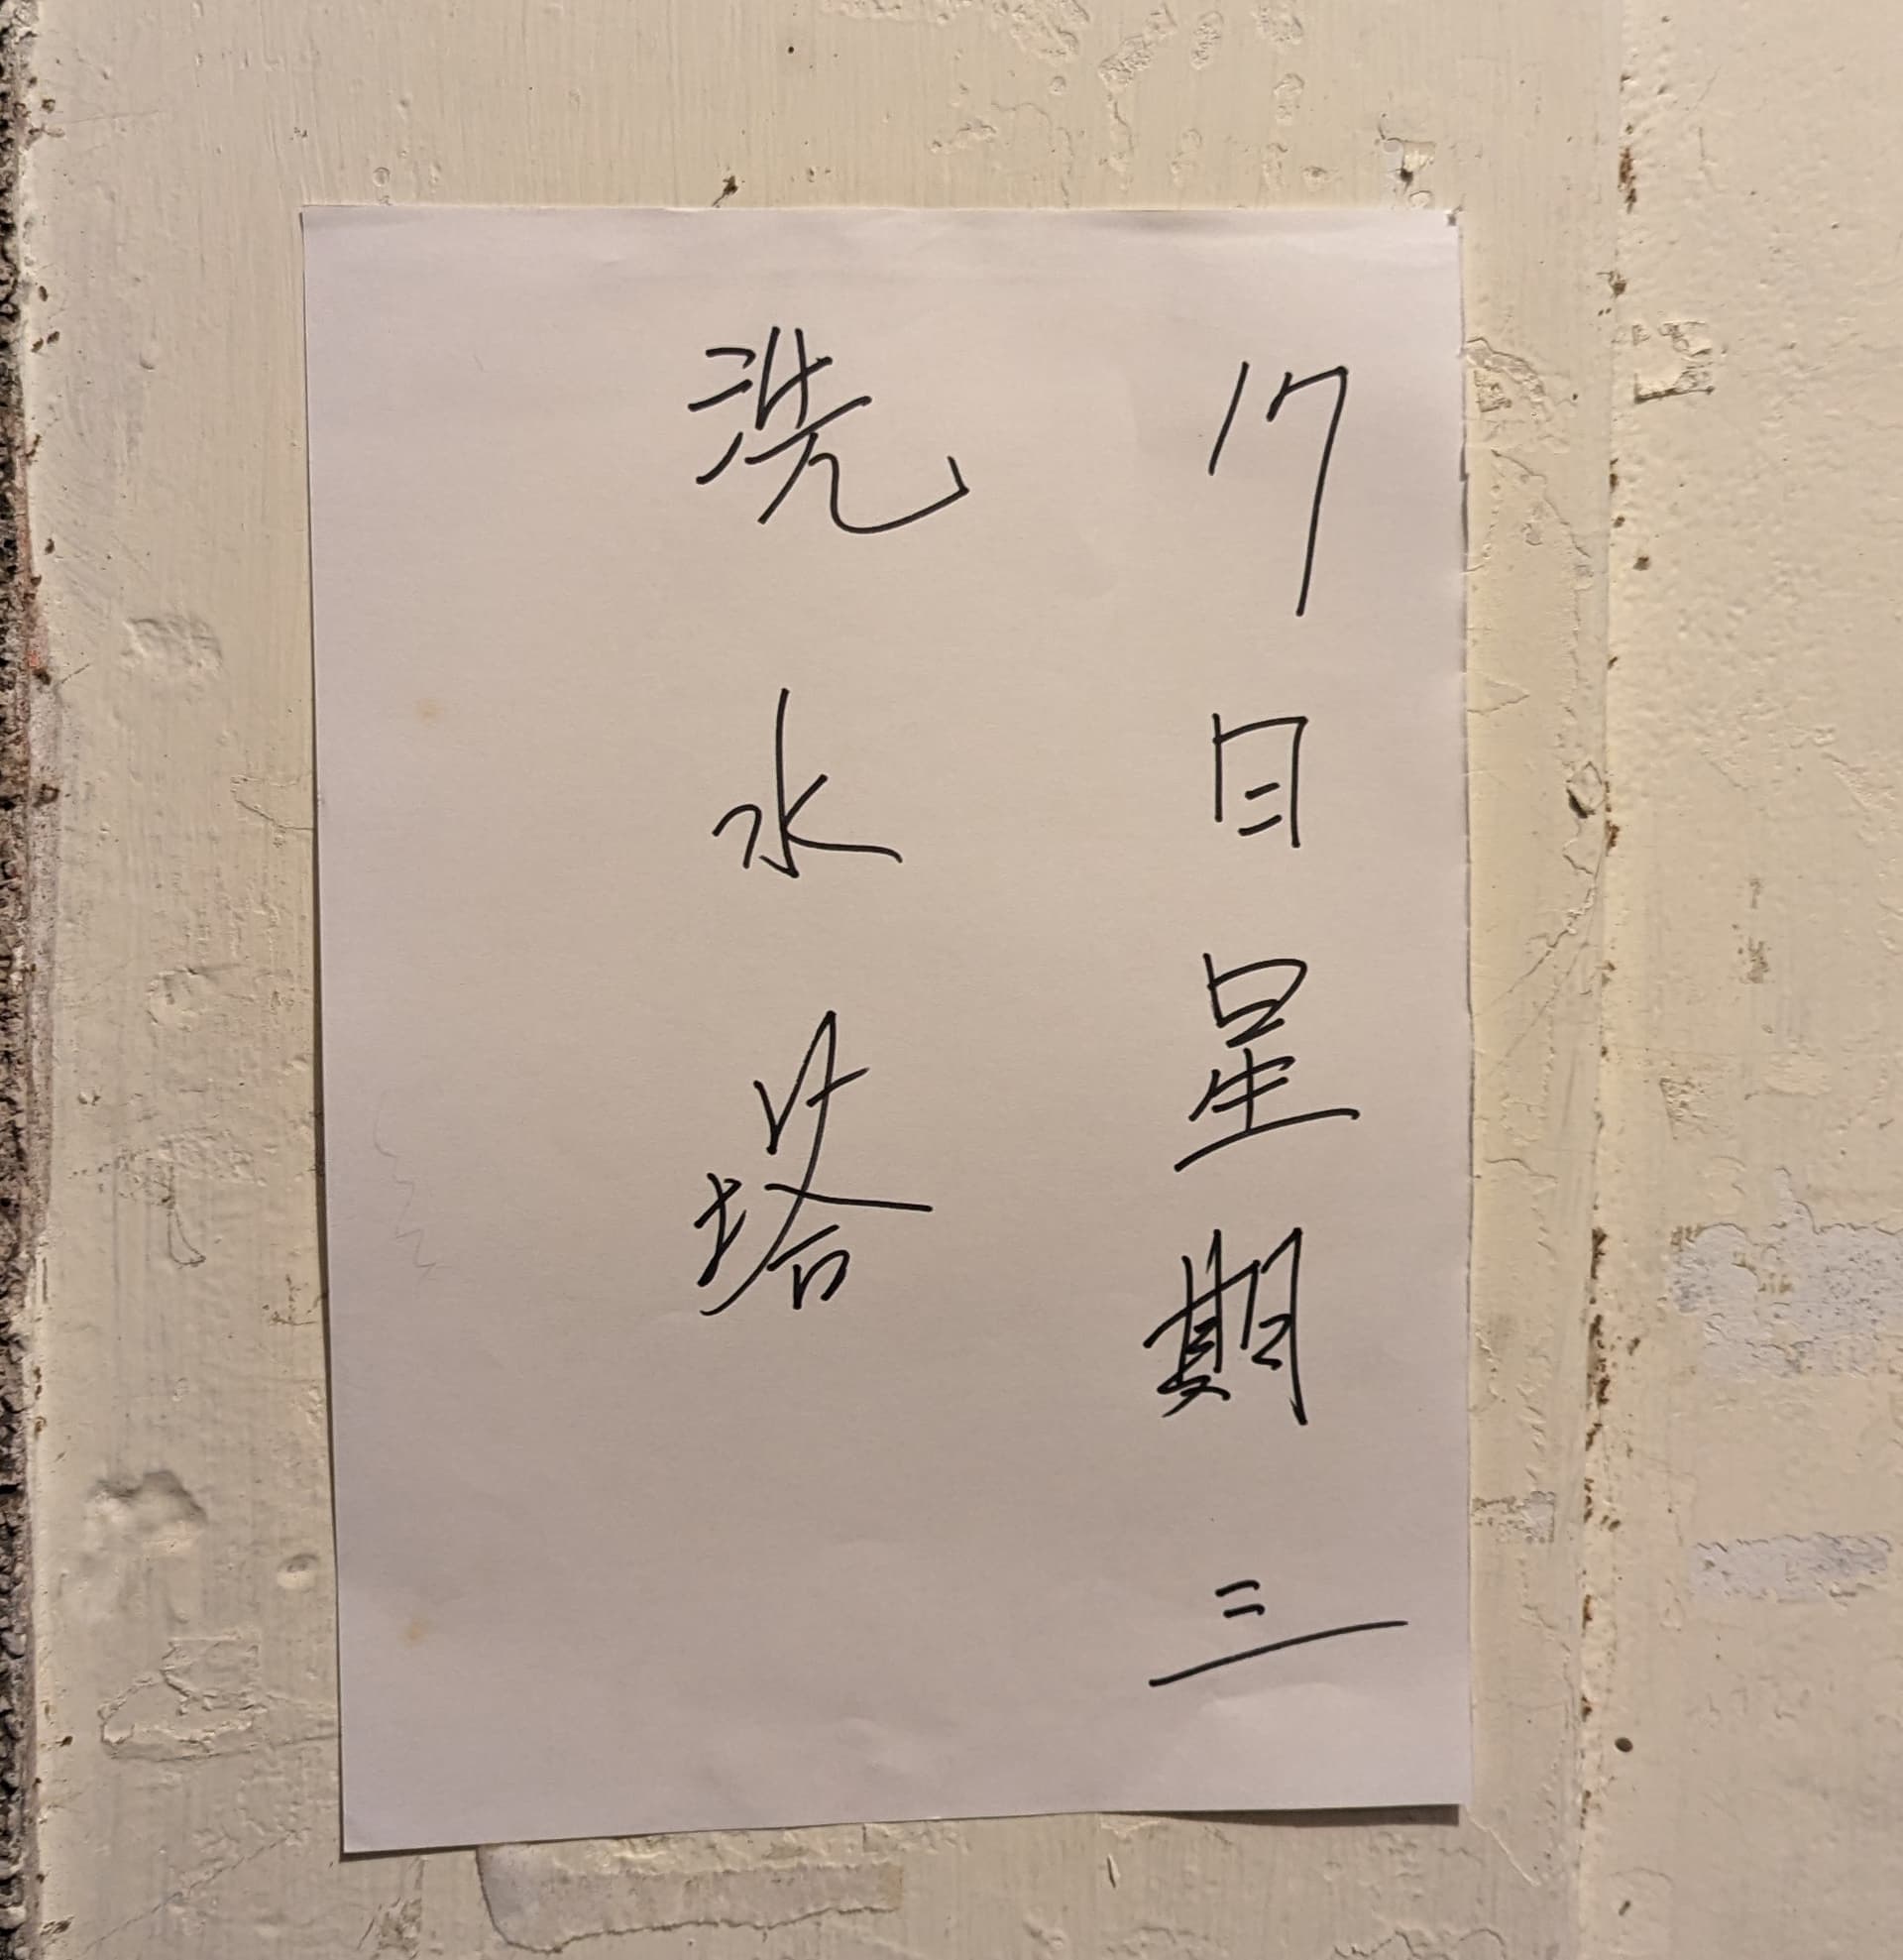 17日星期三
洗水塔